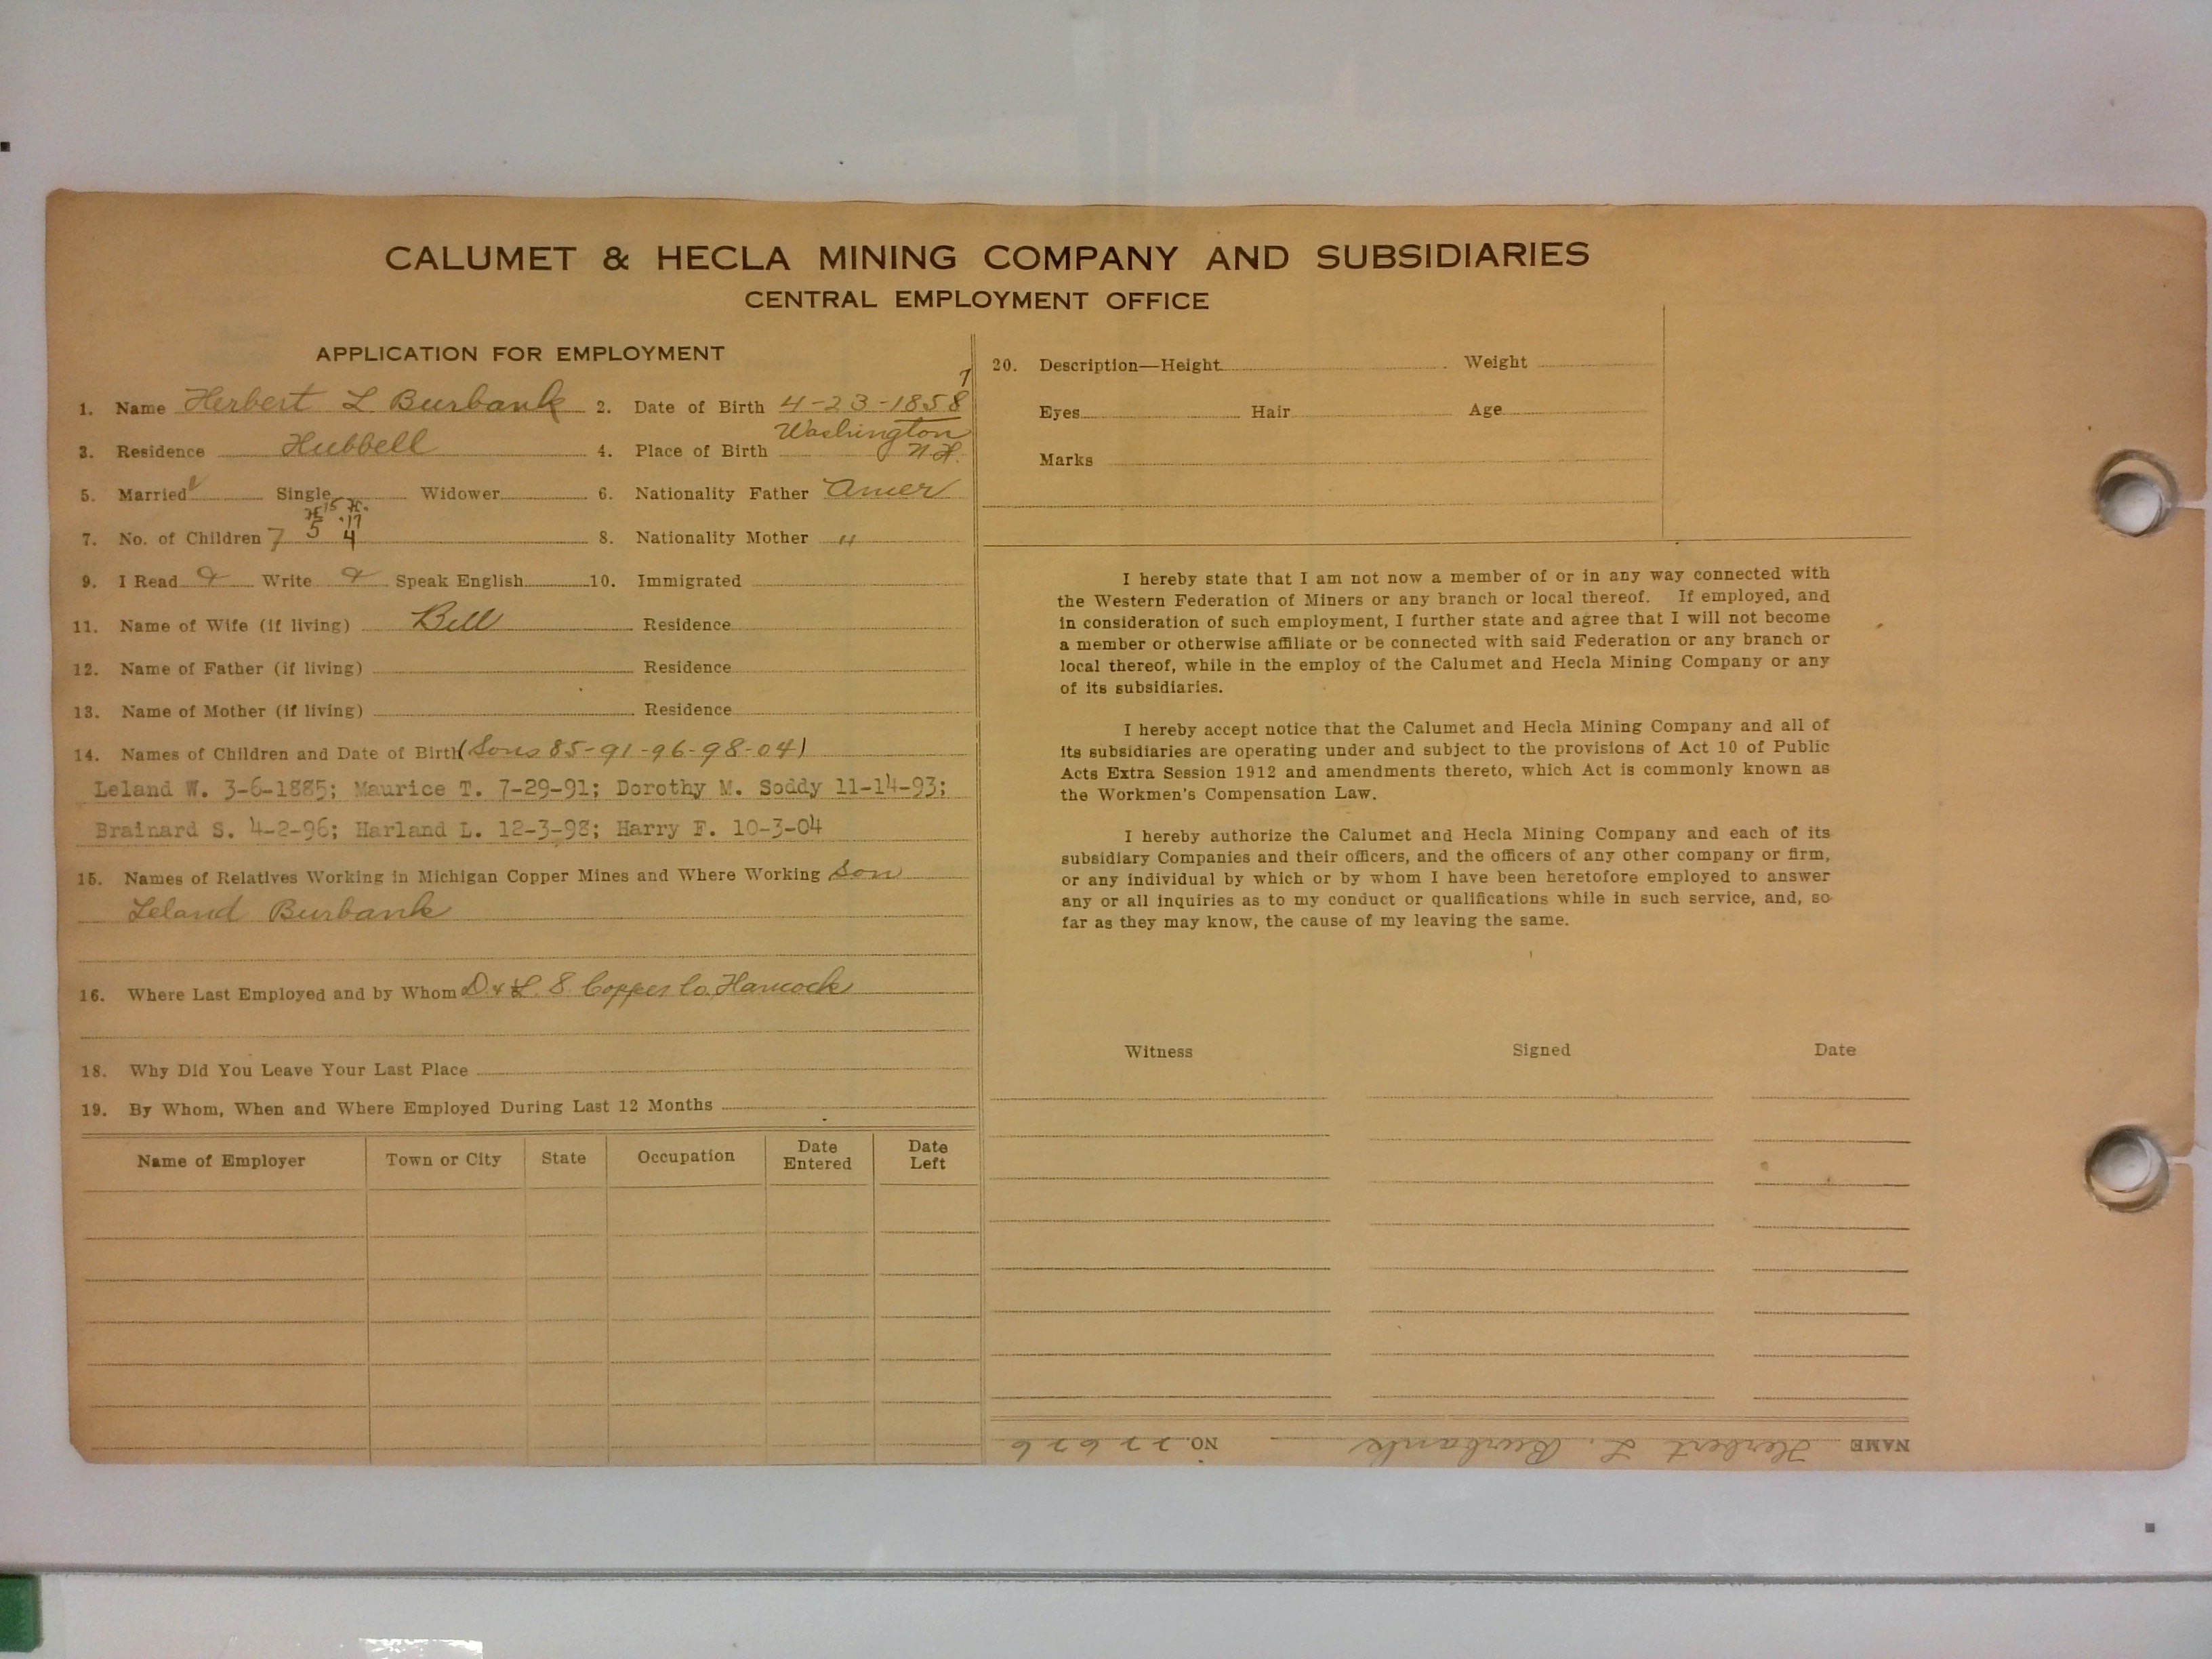 CALUMET & HECLA MINING COMPANY AND SUBSIDIARIES
CENTRAL EMPLOYMENT OFFICE
APPLICATION FOR EMPLOYMENT
1. Name Herbert L Burbank 2. Date of Birth 4-23-1858 7
3. Residence Hubbell 4. Place of Birth Washington N.H.
5. Married Single Widower 6. Nationality Father Amer
7. No. of Children 7 5 4 '15 '17 8. Nationality Mother "
9. I Read Write Speak English 10. Immigrated
11. Name of Wife (if living) Bell Residence
12. Name of Father (if living) Residence
13. Name of Mother (if living) Residence
14. Names of Children and Date of Birth (Sons 85-91-96-98-04)
Leland W. 3-6-1885; Maurice T. 7-29-91; Dorothy M. Soddy 11-14-93;
Brainard S. 4-2-96; Harland L. 12-3-98; Harry F. 10-3-04
15. Names of Relatives Working in Michigan Copper Mines and Where Working Son
Leland Burbank
16. Where Last Employed and by Whom D & L. S. Copper Co. Hancock
18. Why Did You Leave Your Last Place
19. By Whom, When and Where Employed During Last 12 Months
Name of Employer Town or City State Occupation Date Entered Date Left
20. Description—Height Weight
Eyes Hair Age
Marks
I hereby state that I am not now a member of or in any way connected with
the Western Federation of Miners or any branch or local thereof. If employed, and
in consideration of such employment, I further state and agree that I will not become
a member or otherwise affiliate or be connected with said Federation or any branch or
local thereof, while in the employ of the Calumet and Hecla Mining Company or any
of its subsidiaries.
I hereby accept notice that the Calumet and Hecla Mining Company and all of
its subsidiaries are operating under and subject to the provisions of Act 10 of Public
Acts Extra Session 1912 and amendments thereto, which Act is commonly known as
the Workmen's Compensation Law.
I hereby authorize the Calumet and Hecla Mining Company and each of its
subsidiary Companies and their officers, and the officers of any other company or firm,
or any individual by which or by whom I have been heretofore employed to answer
any or all inquiries as to my conduct or qualifications while in such service, and, so
far as they may know, the cause of my leaving the same.
Witness Signed Date
NAME Herbert L. Burbank NO. 22626